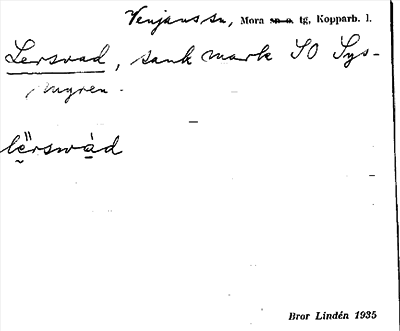 Venjans sn, Mora s̶n̶ o̶. tg, Kopparb. l.
Lersvad, sank mark SO Sys-
myren.
lë̤rswà̱d
Bror Lindén 1935